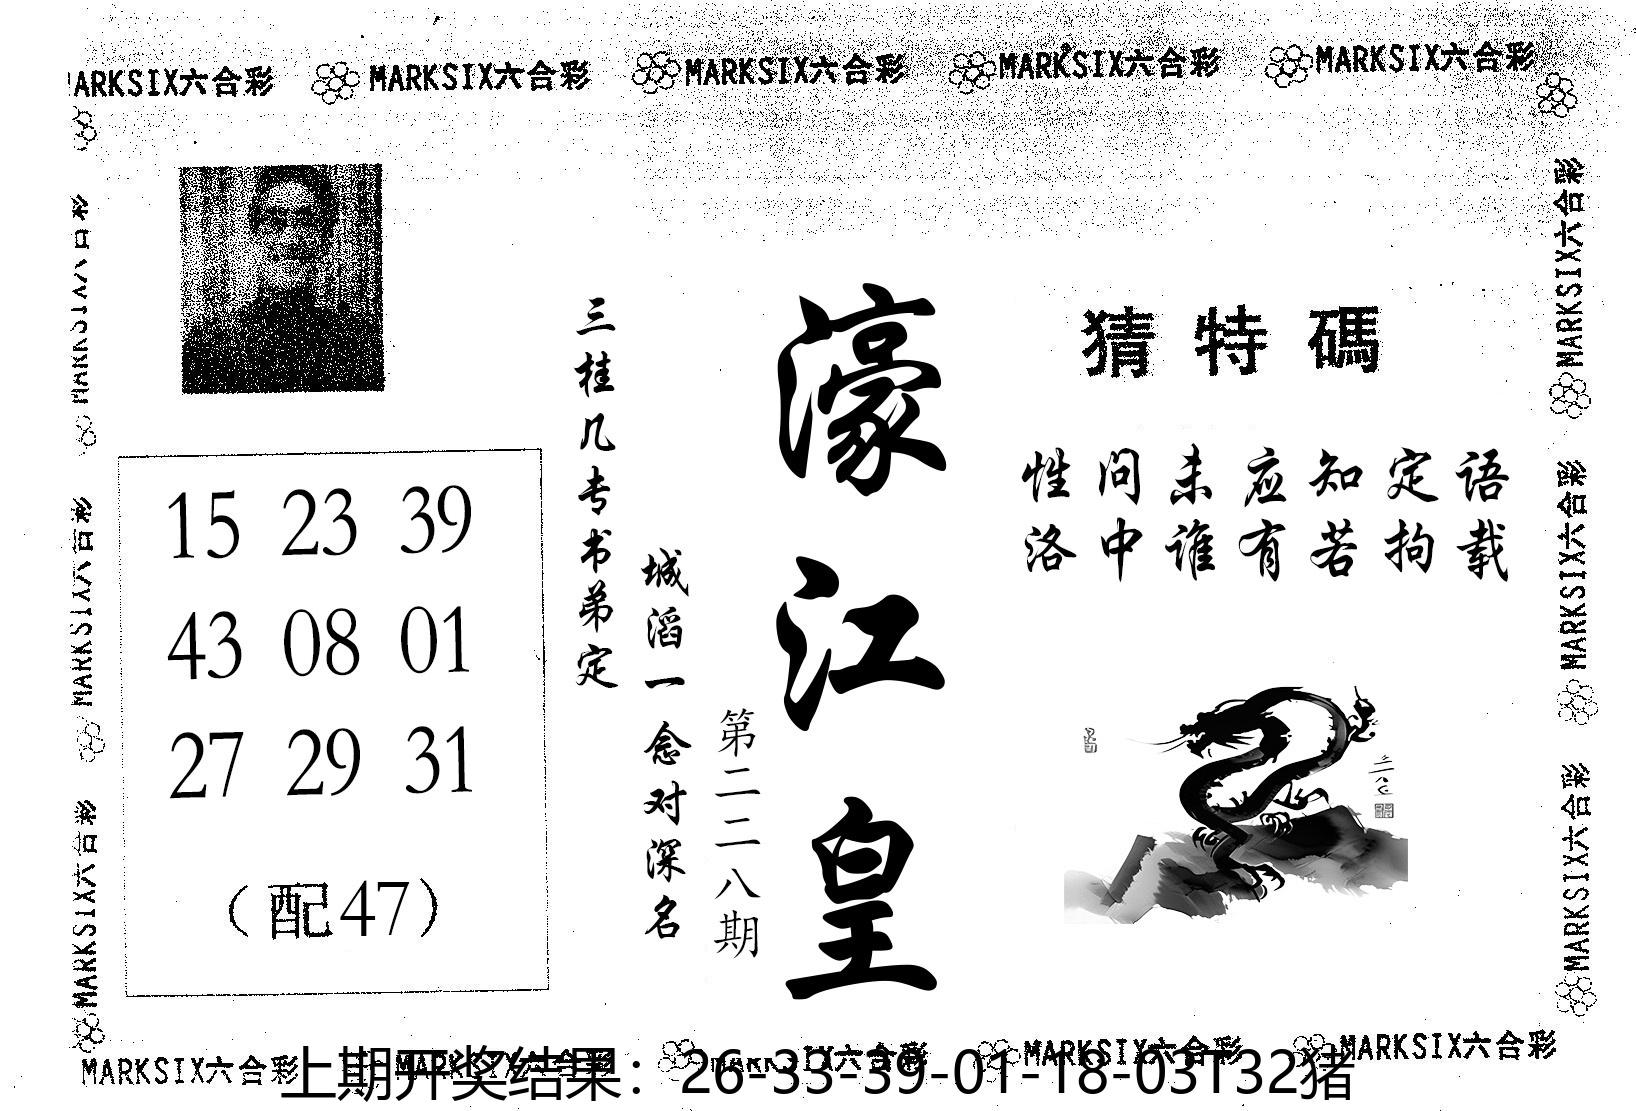 MARKSIX六合彩 MARKSIX六合彩 MARKSIX六合彩 MARKSIX六合彩 MARKSIX六合彩
MARKSIX六合彩
MARKSIX六合彩
MARKSIX六合彩
猜特碼
性问未应知定语
洛中谁有若拘载
濠江皇
第二二八期
城滔一念对深名
三桂几专书弟定
15 23 39
43 08 01
27 29 31
（配47）
MARKSIX六合彩
MARKSIX六合彩
MARKSIX六合彩
MARKSIX六合彩 MARKSIX六合彩 MARKSIX六合彩 MARKSIX六合彩 MARKSIX六合彩
上期开奖结果：26-33-39-01-18-03T32猪